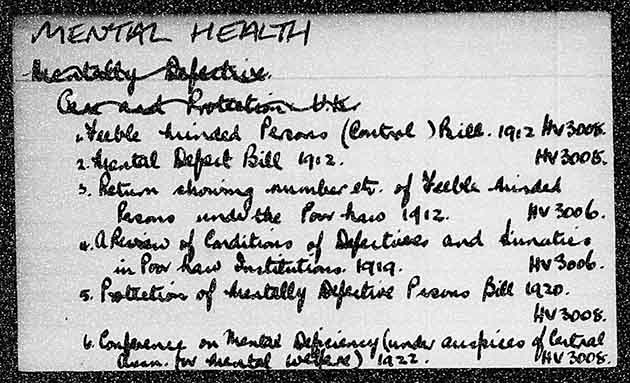 MENTAL HEALTH
Mentally Defective.
Care and Protection U.K.
1. Feeble Minded Persons (Control) Bill. 1912 HV3008.
2. Mental Defect Bill 1912. HV3008.
3. Return showing number etc. of Feeble Minded
Persons under the Poor Law 1912. HV3006.
4. A Review of Conditions of Defectives and Lunatics
in Poor Law Institutions. 1919. HV3006.
5. Protection of Mentally Defective Persons Bill 1920.
HV3008.
6. Conference on Mental Deficiency (under auspices of Central
Assn. for Mental Welfare) 1922. HV3008.